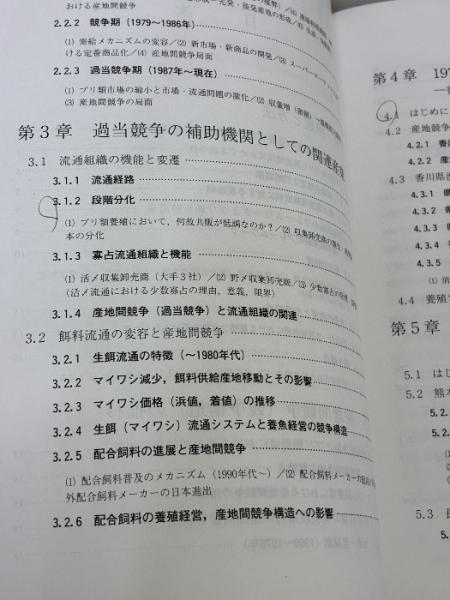 における産地間競争
2.2.2 競争期（1979〜1986年）
(1) 需給メカニズムの変容／(2) 新市場・新商品の開発／(3) スーパーマーケット
ける定番商品化／(4) 産地間競争局面
2.2.3 過当競争期（1987年〜現在）
(1) ブリ類市場の縮小と市場・流通問題の激化／(2)
(3) 産地間競争の局面
第3章 過当競争の補助機関としての関連産業
3.1 流通組織の機能と変遷
3.1.1 流通経路
3.1.2 段階分化
(1) ブリ類養殖において，何故共販が低調なのか？／(2) 収集卸売商の
本の分化
3.1.3 寡占流通組織と機能
(1) 活〆収集卸売商（大手3社）／(2) 野〆収集卸売商／(3) 少数寡占の
（活〆流通における少数寡占の理由，意義，限界）
3.1.4 産地間競争（過当競争）と流通組織の関連
3.2 餌料流通の変容と産地間競争
3.2.1 生餌流通の特徴（〜1980年代）
3.2.2 マイワシ減少，餌料供給産地移動とその影響
3.2.3 マイワシ価格（浜値，着値）の推移
3.2.4 生餌（マイワシ）流通システムと養魚経営の競争構造
3.2.5 配合飼料の進展と産地間競争
(1) 配合飼料普及のメカニズム（1990年代〜）／(2) 配合飼料メーカーの
外配合飼料メーカーの日本進出
3.2.6 配合飼料の養殖経営，産地間競争構造への影響
第4章 197
4.1 はじめに
4.2 産地競争
4.2.1
4.2.2 産
4.3 香川県
4.3.1
4.3.2
4.3.3
4.3.4
4.3.5
4.4 養殖
第5章
5.1 はじ
5.2 熊本
5.2.
5.2.
5.3
5.3.